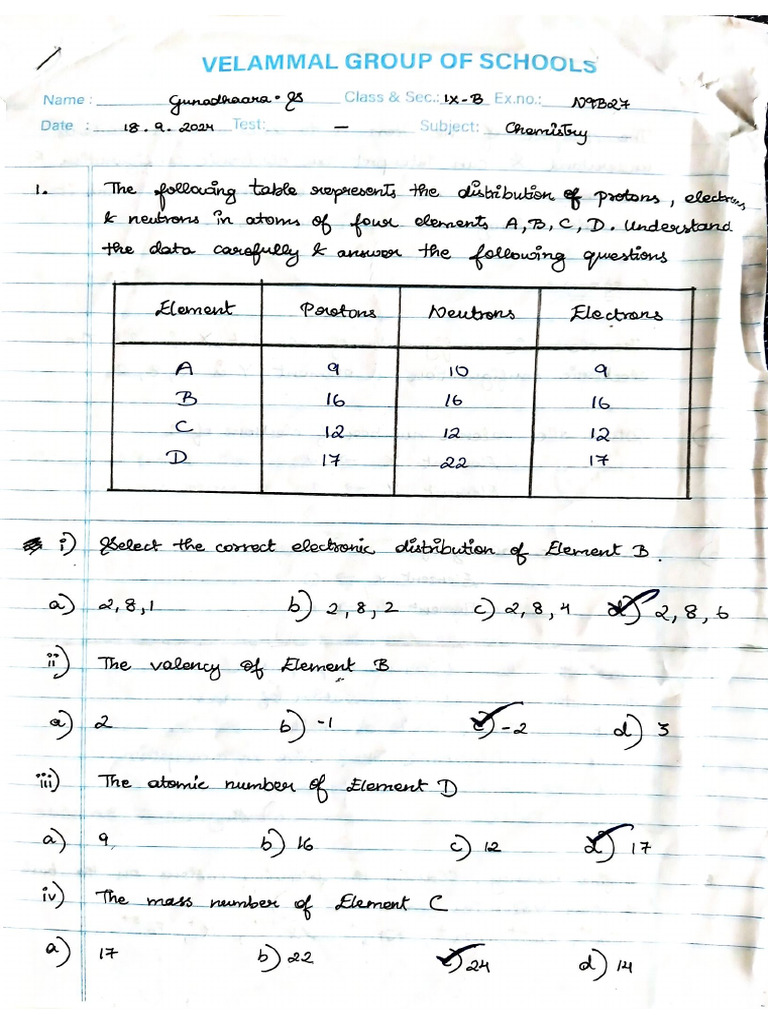 VELAMMAL GROUP OF SCHOOLS
Name : Gunadhaara. GS Class & Sec.: IX-B Ex.no.: N9B27
Date : 18.9.2024 Test: - Subject: Chemistry
1. The following table represents the distribution of protons, electrons
& neutrons in atoms of four elements A, B, C, D. Understand
the data carefully & answer the following questions
Element Protons Neutrons Electrons
A 9 10 9
B 16 16 16
C 12 12 12
D 17 22 17
i) Select the correct electronic distribution of Element B.
a) 2,8,1 b) 2,8,2 c) 2,8,4 d) 2,8,6
ii) The valency of Element B
a) 2 b) -1 c) -2 d) 3
iii) The atomic number of Element D
a) 9 b) 16 c) 12 d) 17
iv) The mass number of Element C
a) 17 b) 22 c) 24 d) 14